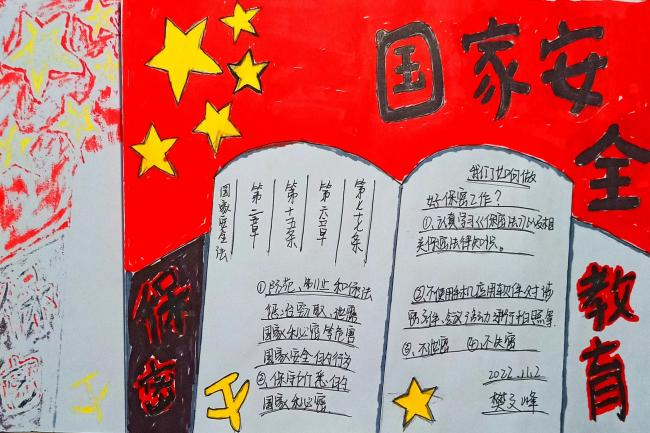 国家安全教育
保密
国家安全法
第二章
第十五条
第六章
第七十七条
①防范、制止和依法
惩治窃取、泄露
国家秘密等危害
国家安全的行为
②保守所知悉的
国家秘密
我们如何做
好保密工作?
①、认真学习《保密法》以及相
关保密法律知识。
②、不使用手机应用软件对涉
密文件、会议活动进行拍照等
③、不泄密 ④、不失密
2022.11.2
樊文峰